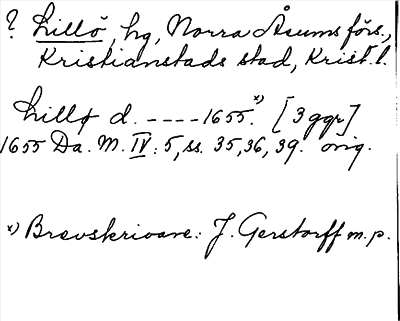 ? Lillö, hg, Norra Åsums förs.,
Kristianstads stad, Krist. l.
Lillø d. ---- 1655.*) [3 ggr]
1655 Da. M. IV: 5, ss. 35, 36, 39. orig.
*) Brevskrivare: J. Gerstorff m.p.